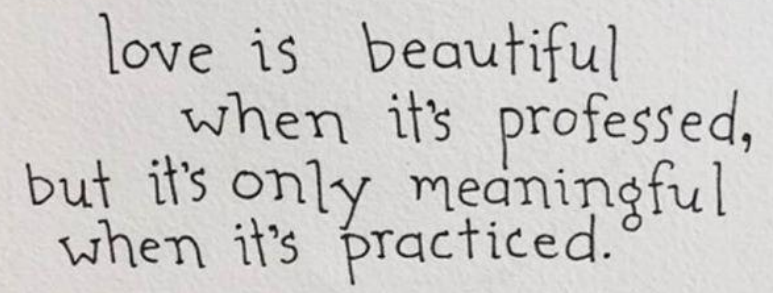 love is beautiful
when it's professed,
but it's only meaningful
when it's practiced.